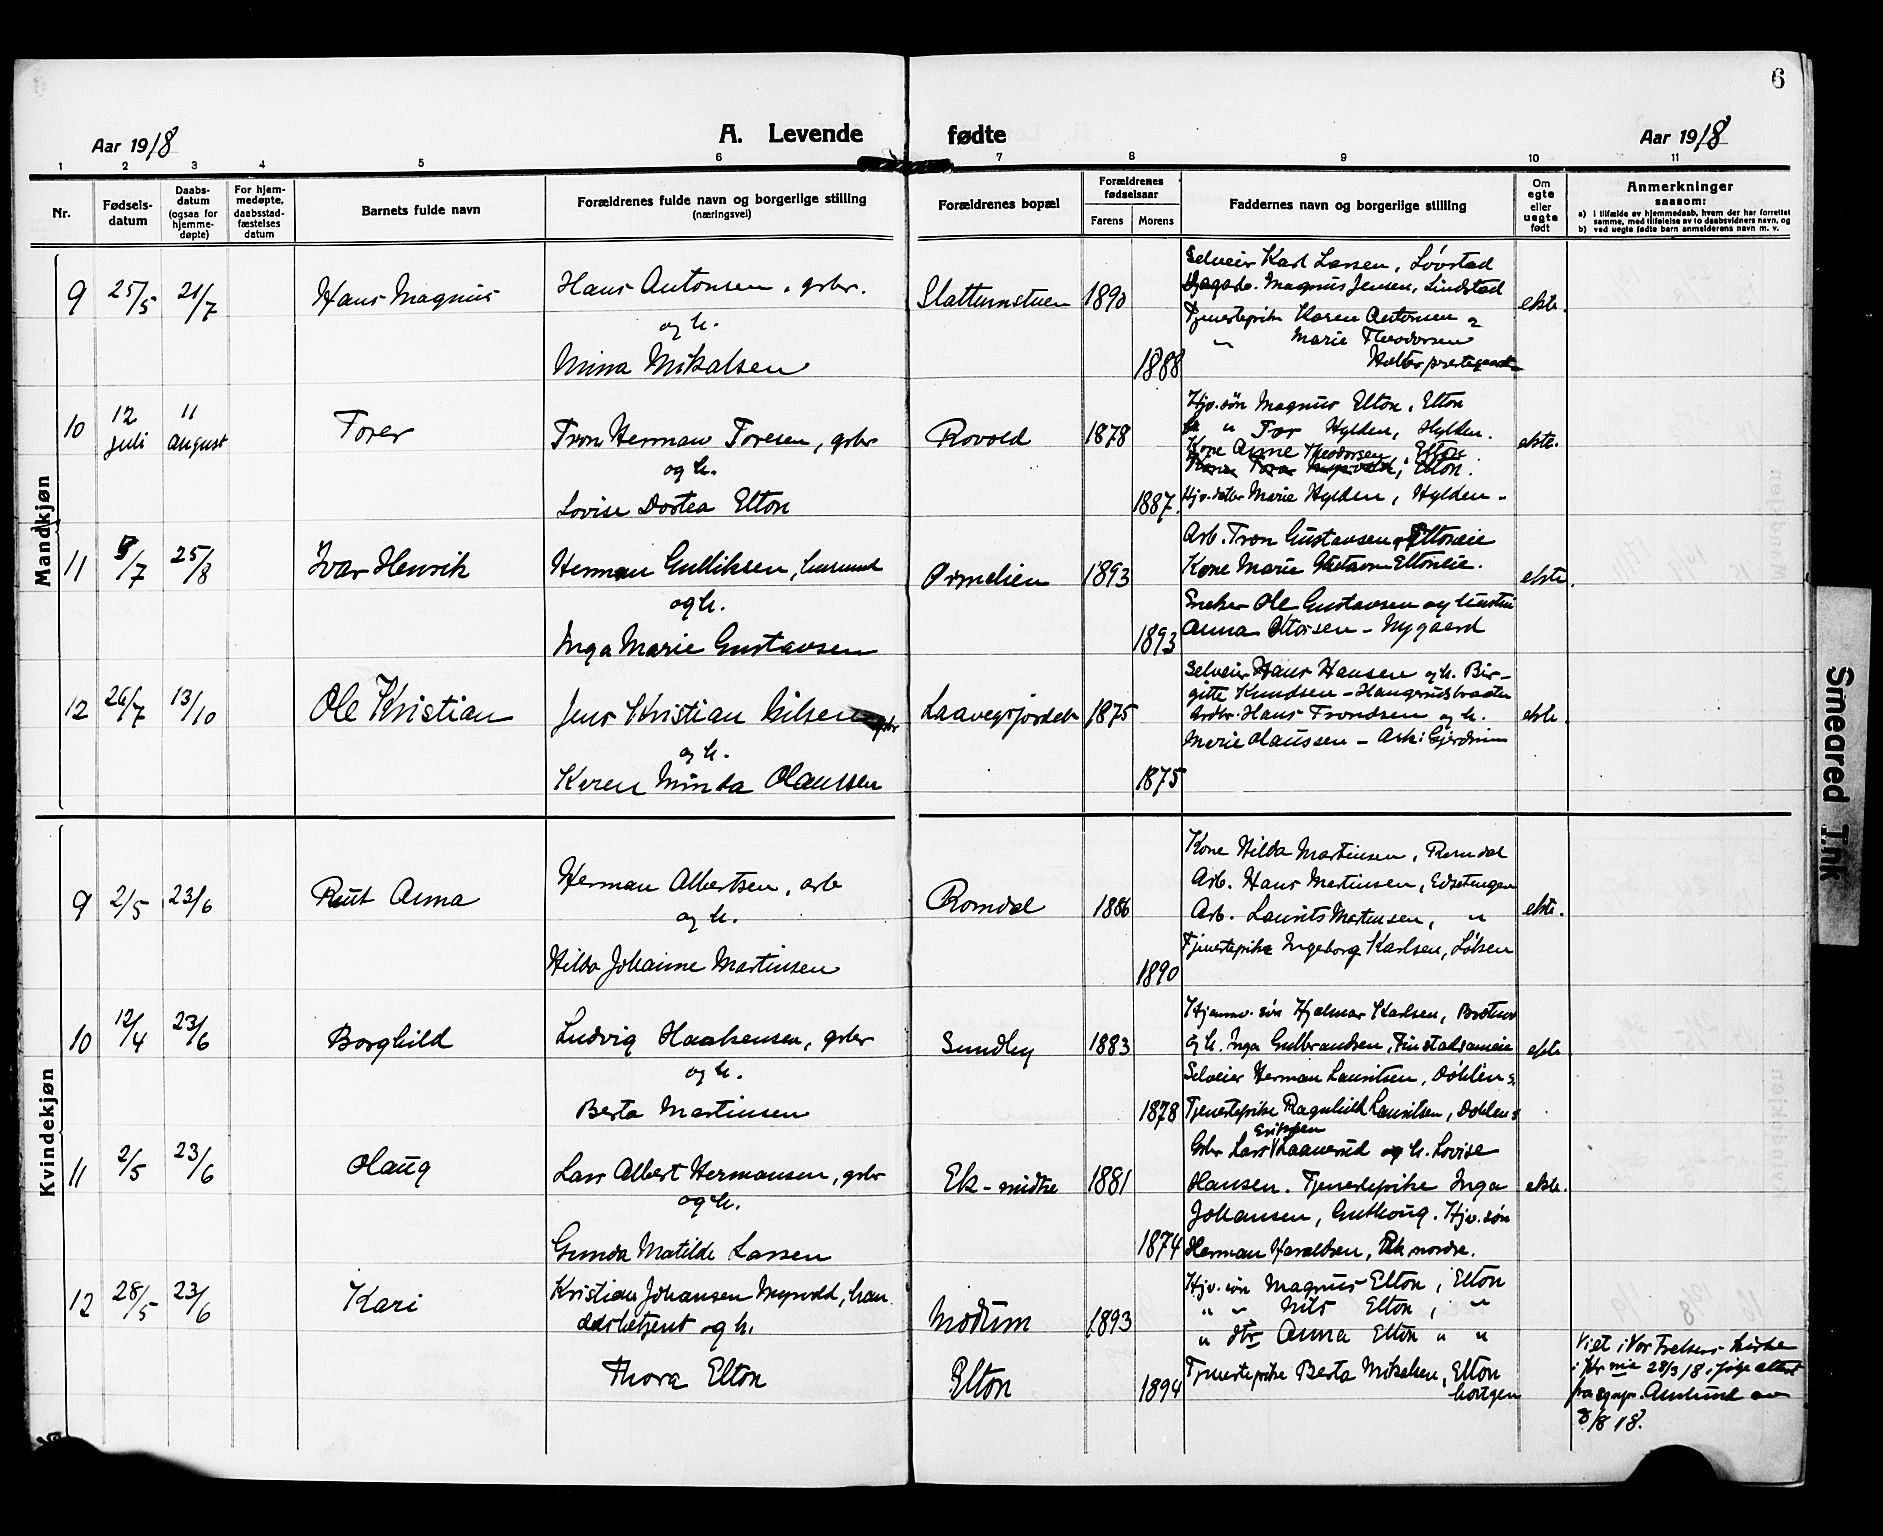 6
Aar 1918
A. Levende fødte
Aar 1918
1 2 3 4 5 6 7 8 9 10 11
Nr.
Fødsels-
datum
Daabs-
datum
(ogsaa for
hjemme-
døpte)
For hjem-
medøpte,
daabsstad-
fæstelses
datum
Barnets fulde navn
Forældrenes fulde navn og borgerlige stilling
(næringsvei)
Forældrenes bopæl
Forældrenes
fødselsaar
Farens
Morens
Faddernes navn og borgerlige stilling
Om
egte
eller
uegte
født
Anmerkninger
saasom:
a) i tilfælde av hjemmedaab, hvem der har forrettet
samme, med tilføielse av to daabsvidners navn, og
b) ved uegte fødte barn anmelderens navn m. v.
Mandkjøn
9 25/5 21/7 Hans Magnus
Hans Antonsen, grbr.
og h.
Minna Mikalsen
Slattumstuen 1890
1888
Selveier Karl Larsen, Lövstad
Magnus Jensen, Lindstad
Tjenestepike Karen Antonsen og
" Marie Theodorsen
ekte.
10 12 juli 11 august Torer
Tron Herman Toresen, grbr
og h.
Lovise Dortea Elton
Rovold 1878
1887.
Hjv. søn Magnus Elton, Elton
" Tor Hylden, Hylden.
Kone Anne Theodorsen, Elton
Elton.
Hjv. datter Marie Hylden, Hylden.
ekte.
11 5/7 25/8 Ivar Henrik
Herman Gulliksen,
og h.
Inga Marie Gustavsen
Ormelien 1893
1893
Arb. Tron Gustavsen, Eltoneie
Kone Marie Gustavsen Eltoneie.
Sneker Ole Gustavsen og hustru
Anna Ottersen - Nygaard
ekte.
12 26/7 13/10 Ole Kristian
Jens Kristian Nilsen grbr
og h.
Karen Minda Olaussen
Laavegsjordet 1875
1875
Selveier Hans Hansen og h. Bir-
gitte Knudsen - Haugerudbraaten
Hans Trondsen og h.
Marie Olaussen - Ask i Gjerdrum
ekte.
Kvindekjøn
9 2/5 23/6 Rut Anna
Herman Albertsen, arb
og h.
Hilda Johanne Martinsen
Romdal 1886
1890
Kone Hilda Martinsen, Romdal
Arb. Hans Martinsen,
Arb. Laurits Martinsen, "
Tjenestepike Ingeborg Karlsen, Løken
ekte.
10 12/4 23/6 Borghild
Ludvig Haakensen, grbr
og h.
Berta Martinsen
Sundby 1883
1878
Hjemmv. søn Hjalmar Karlsen,
og h. Inga Gulbrandsen,
Selveier Herman Lauritsen, Dohlen s.
Tjenestepike Ragnhild Lauritsen, Dohlen s.
ekte
11 2/5 23/6 Olaug
Lars Albert Hermansen, grbr
og h.
Gunda Matilde Larsen
Ek - midtre 1881
1874
Grbr Lars Eriksen Laanerud og h. Lovise
Hansen. Tjenestepike Inga
Johansen, Hjv. søn
Herman Haraldsen, Ek nordre.
ekte.
12 28/5 23/6 Kari
Kristian Johansen Myrvold, han-
delsbetjent og h.
Thora Elton
Modum 1893
Elton 1894
Hjv. søn Magnus Elton, Elton
" " Nils Elton, "
" dtr Anna Elton " "
Tjenestepike Berta Mikalsen, Elton
Viet i Vor Frelsers kirke
i Kr.nia 28/3 18, ifølge attest
fra sgnpr. Amlund av
8/8 18.
Smeared Ink